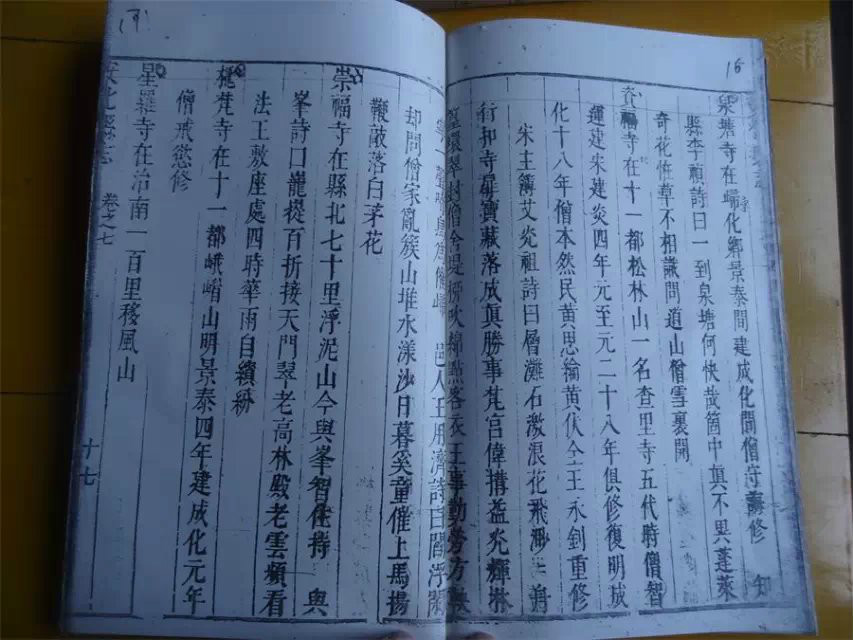 16
泉塘寺在歸化鄉景泰間建成化間僧守壽修 知
縣李願詩曰一到泉塘何快哉箇中真不異蓬萊
奇花恠草不相識問道山僧雪裏開
資福寺在十一都松林山一名查里寺五代時僧智
運建宋建炎四年元至元二十八年俱修復明成
化十八年僧本然民黃思綸黃伏仝王永釗重修
宋主簿艾炎祖詩曰層灘石激浪花飛渺
行扣寺扉寶藏落成真勝事梵宮偉搆益光輝林
巒環翠封僧舍堤柳吹綿點客衣王事勤勞方
邑人王用濟詩曰
却問僧家亂簇山堆水漾沙日暮奚童催上馬揚
鞭敲落白茅花
崇福寺在縣北七十里浮泥山今與峯智住持 與
峯詩曰龍摐百折接天門翠老高林殿老雲頻看
法王敷座處四時華雨自繽紛
梵寺在十一都峨嵋山明景泰四年建成化元年
僧戒慾修
星羅寺在治南一百里移風山
安化縣志 卷之七 十七